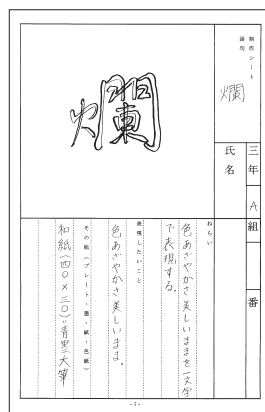 制作シート
語句
爛
三年A組
番
氏名
爛
ねらい
色あざやかさ美しいままを一文字
で表現する。
表現したいこと
色あざやかさ美しいまま。
その他(プレート・墨・紙・色紙)
和紙(四〇×三〇)"青墨"大筆
-1-